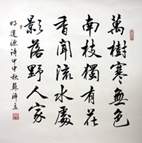 萬樹寒無色
南枝獨有花
香聞流水處
影落野人家
明道源詩甲申秋